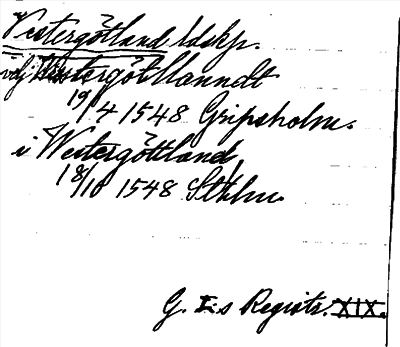 Vestergötland ldskp.
vdj Westergöttlanndt
19/4 1548 Gripsholm.
i Westergöttland,
18/10 1548 Sthlm.
G. I:s Registr. XIX.